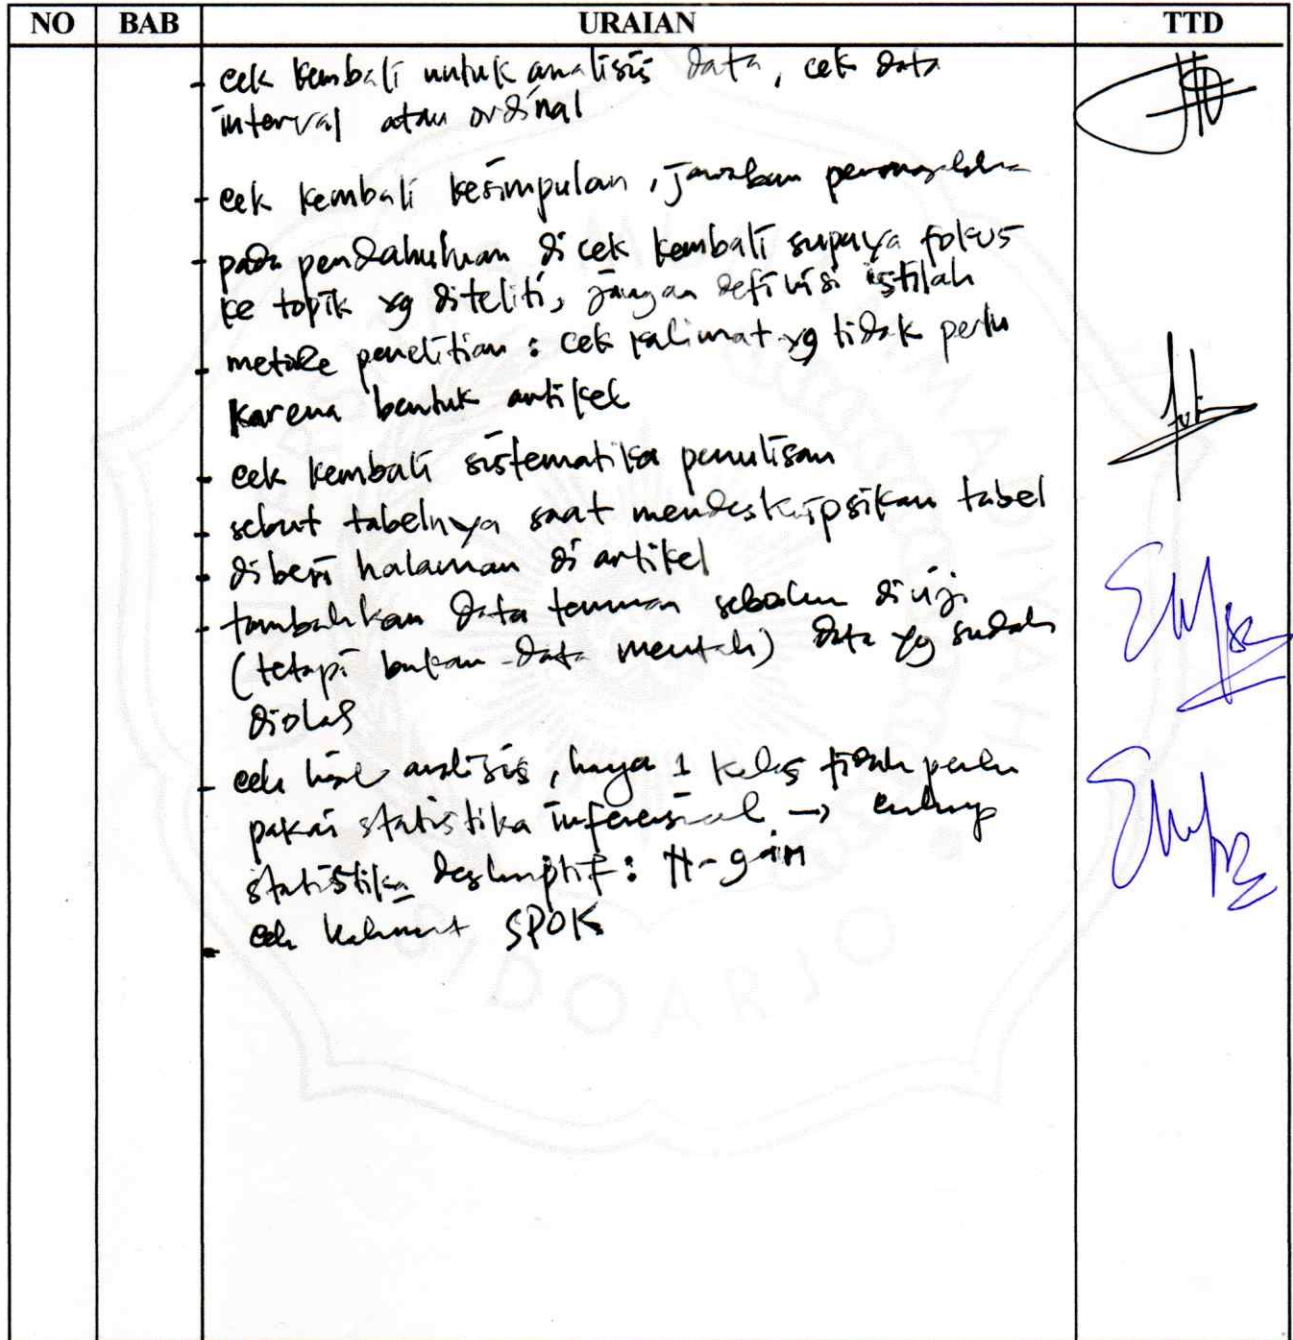 NO BAB URAIAN TTD
- cek kembali untuk analisis data, cek data
interval atau ordinal
- cek kembali kesimpulan, jawaban permasalahan
- pada pendahuluan dicek kembali supaya fokus
ke topik yg diteliti, jangan definisi istilah
- metode penelitian : cek kalimat yg tidak perlu
karena bentuk artikel
- cek kembali sistematika penulisan
- sebut tabelnya saat mendeskripsikan tabel
- diberi halaman di artikel
- tambahkan data temuan sebelum diuji
(tetapi bukan data mentah) data yg sudah
diolah
- cek hasil analisis, hanya 1 kelas tidak perlu
pakai statistika inferensial → cukup
statistika deskriptif : N-gain
- cek kalimat SPOK
SIDOARJO